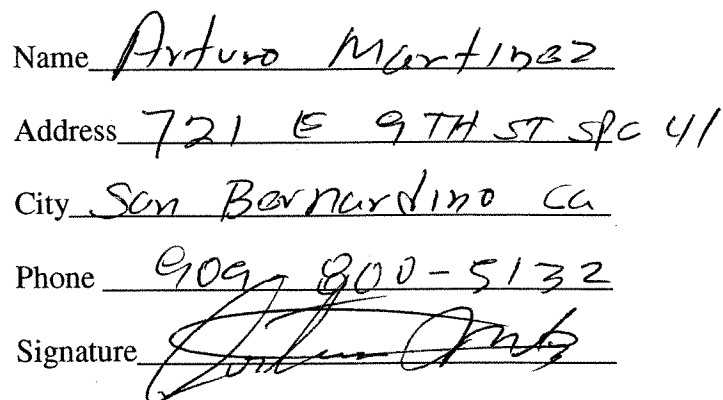 Name Arturo Martinez
Address 721 E 9TH ST SPC 41
City San Bernardino Ca
Phone 909 800-5132
Signature